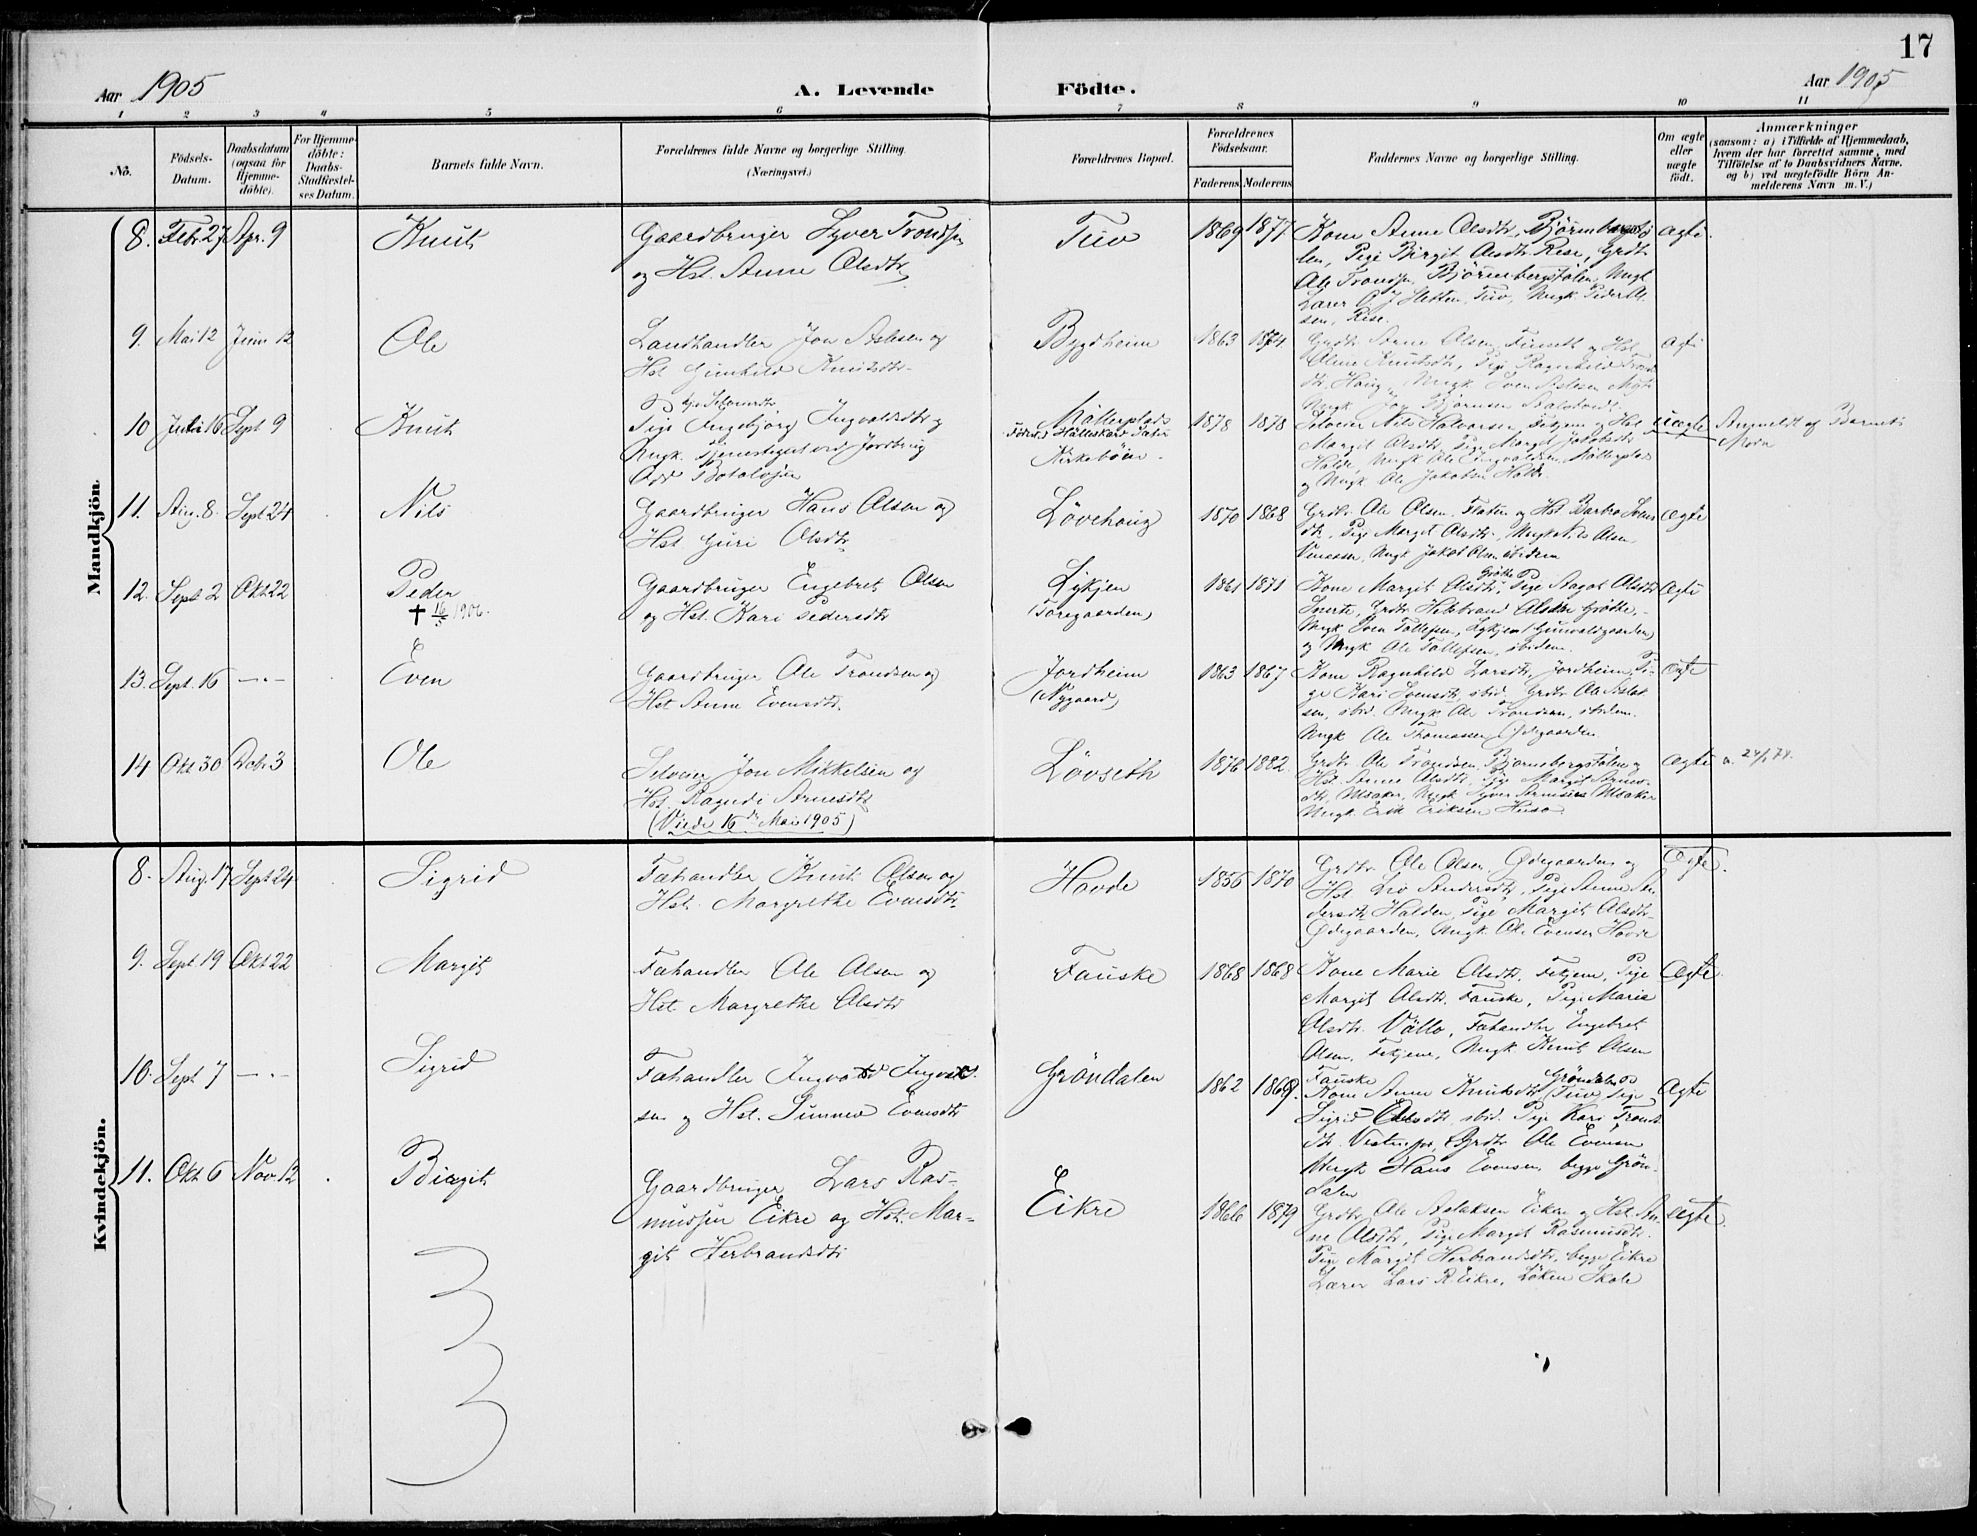 17
Aar 1905
A. Levende
Födte.
Aar 1905
1 2 3 4 5 6 7 8 9 10 11
No.
Födsels-
Datum.
Daabsdatum
(ogsaa for
Hjemme-
döbte).
For Hjemme-
döbte:
Daabs-
Stadfæstel-
ses Datum.
Barnets fulde Navn.
Forældrenes fulde Navne og borgerlige Stilling.
(Næringsvei.)
Forældrenes Bopæl.
Forældrenes
Födselsaar.
Faderens Moderens
Faddernes Navne og borgerlige Stilling.
Om ægte
eller
uægte
födt.
Anmærkninger
(saasom: a) i Tilfælde af Hjemmedaab,
hvem der har forrettet samme, med
Tilföielse af to Daabsvidners Navne.
og b) ved uægtefödte Börn An-
melderens Navn m. V.)
Mandkjön.
8. Febr. 27 Apr. 9 Knut
Gaardbruger Syver Trondsen
og Hst. Anne Olsdtr.
Tuv
1869 1877
Kone Anne Olsdtr, Björnbergstö
len, Pige Birgit Olsdtr Rese, Grdbr
Ole Trondsen Björnbergstölen, Ungk.
Lærer O. J. Sletten, Tuv, Ungk. Peder Ol
sen, Rese.
ægte
9. Mai 12 Juni 12 Ole
Landhandler Jon Aslesen og
Hst Gunhild Knutsdtr.
Bygdheim
1863 1874
Grdbr. Arne Olsen, Finseth og Hst
Knutsdtr, Pige Ragnhild Trond
dtr. Haug, Ungk. Sven Aslesen
Ungk Jon Björnsen
ægte
10 Juli 16 Sept 9 Knut
Pige Ingebjörg Ingvaldsdtr og
Ungk. Tjenestegut ved Jordbrug
Odd Botolvsen
Mölleplads
Kirkeböen.
1878 1878
Selveier Nils Halvorsen, Fekjen og Hst
Margit Olsdtr, Pige Margit Jakobsdtr
Halde, Ungk Ole Ingvaldsen, Mölleplads
og Ungk Ole Jakobsen Halde
uægte
Anmeldt af Barnets
Mor
11. Aug. 8. Sept 24 Nils
Gaardbruger Hans Olsen og
Hst Guri Olsdtr
Lövehaug
1870 1868
Grdbr. Ole Olsen Flaten og Hst Barbro Svens
dtr, Pige Margit Olsdtr, Ungk Nils Olsen
Ungk Jakob Olsen ibidem
ægte
12. Sept 2 Okt 22 Peder
✝ 16/5 1906.
Gaardbruger Engebret Olsen
og Hst. Kari Pedersdtr
Lykjen
(Toregaarden)
1861 1871
Kone Margit Olsdtr, Grötte Pige Aagot Olsdtr
Snerte, Grdbr Hilbrand Olsen Grötte,
Ungk Sven Tollefsen, Lykjen (Gunvaldgaarden)
og Ungk Ole Tollefsen, ibidem.
ægte
13. Sept. 16 —"— Even
Gaardbruger Ole Trondsen og
Hst Anne Evensdtr.
Jordheim
(Nygaard)
1863 1867
Kone Ragnhild Larsdtr, Jordheim, Pi-
ge Kari Svensdtr ibid. Grdbr Ole Aslak
sen, ibid. Ungk. Ole Trondsen, ibidem.
Ungk Ole Thomassen Ödegaarden.
ægte
14 Okt 30 Dcb. 3 Ole
Selveier Jon Mikkelsen og
Hst. Ragndi Arnesdtr
(Viede 16de Mai 1905)
Lövseth
1876 1882
Grdbr Ole Trondsen, Björnbergstölen og
Hst. Anne Olsdtr, Pige Margit Arnes-
dtr, Ulsaker, Ungk Syver Arnesen Ulsaker
Ungk Erik Eriksen Huso
ægte
a. 24/1 74.
Kvindekjön.
8. Aug. 17 Sept 24 Sigrid
Fæhandler Knut Olsen og
Hst. Margrethe Evensdtr
Hovde
1856 1870
Grdbr Ole Olsen, Ödegaarden og
Hst Liv Andersdtr, Pige Anne An
dersdtr Halden, Pige Margit Olsdtr
Ödegaarden, Ungk. Ole Evensen Hovde
ægte.
9. Sept. 19 Okt 22 Margit
Fæhandler Ole Olsen og
Hst Margrethe Olsdtr
Fauske
1868 1868
Kone Marie Olsdtr. Fekjene, Pige
Margit Olsdtr. Fauske, Pige Marie
Olsdtr. Völlo, Fæhandler Engebret
Olsen, Fekjene, Ungk. Knut Olsen
Fauske
ægte
10. Sept 7 —"— Sigrid
Fæhandler Ingvald Ingvald-
sen og Hst. Sunnev Evensdtr
Gröndalen
1862 1869.
Kone Anne Knutsdtr Gröndalen Tuv, Pige
Sigrid Olsdtr ibid. Pige Kari Tronds
dtr. Grdbr. Ole Evensen
Ungk Hans Evensen begge Grön-
dalen
ægte
11. Okt 6 Nov. 12 Birgit
Gaardbruger Lars Ras-
mussen Eikre og Hst. Mar-
git Herbrandsdtr
Eikre
1866 1879
Grdbr. Ole Aslaksen Eikre og Hst. An-
ne Olsdtr, Pige Margit Rasmusdtr.
Pige Margit Herbrandsdtr, begge Eikre
Lærer Lars R Eikre, Löken Skole
ægte.